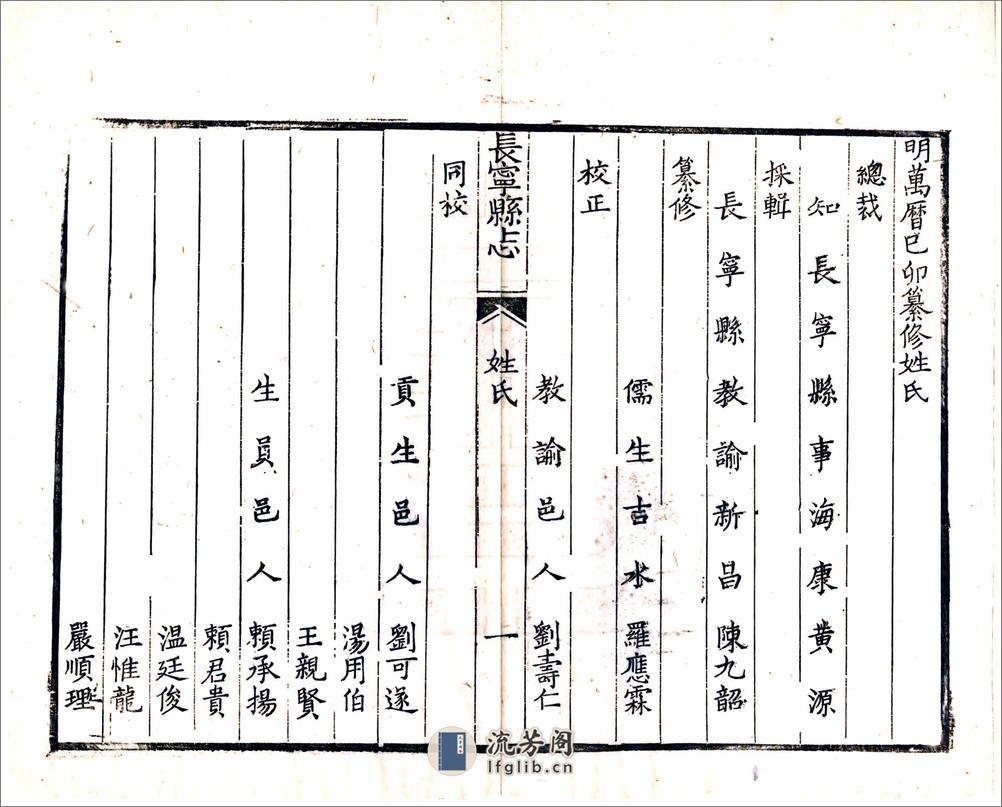 明萬曆巳卯纂修姓氏
總裁
知長寧縣事海康黄源
採輯
長寧縣教諭新昌陳九韶
纂修
儒生吉水羅應霖
校正
教諭邑人劉壽仁
長寧縣志
姓氏
一
同校
貢生邑人劉可遂
湯用伯
王親賢
生員邑人賴承揚
賴君貴
温廷俊
汪惟龍
嚴順理
流芳阁
lfglib.cn